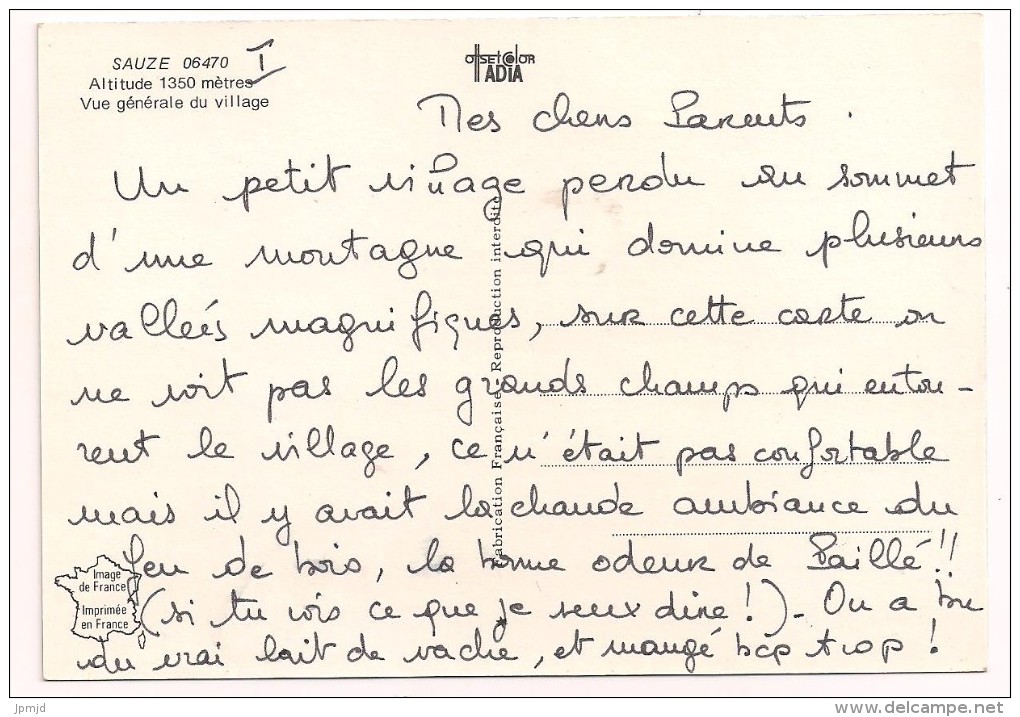 SAUZE 06470 I
Altitude 1350 mètres
Vue générale du village
OFFSET COLOR
ADIA
Mes chers Parents.
Un petit village perdu au sommet
d'une montagne qui domine plusieurs
vallées magnifiques, sur cette carte on
ne voit pas les grands champs qui entou-
rent le village, ce n'était pas confortable
mais il y avait la chaude ambiance du
feu de bois, la bonne odeur de Paille!!
(si tu vois ce que je veux dire!)- On a bu
du vrai lait de vache, et mangé bcp trop!
Fabrication Française - Reproduction interdite
Image
de France
Imprimée
en France
jpmjd
www.delcampe.net